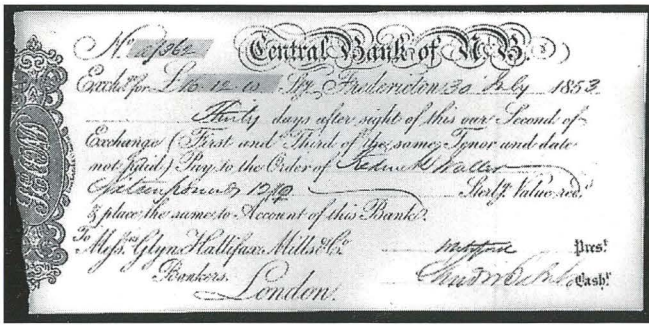 No. Central Bank of N.B.
Exchge. for £16 12 0 Stg. Fredericton 30 July 1853
Thirty days after sight of this our Second of
Exchange (First and Third of the same Tenor and date
not paid) Pay to the Order of Waller
Sixteen pounds 12/ Sterlg. Value recd.
& place the same to Account of this Bank.
To Messrs. Glyn Hallifax Mills & Co.
Prest.
Bankers. Cashr.
London.